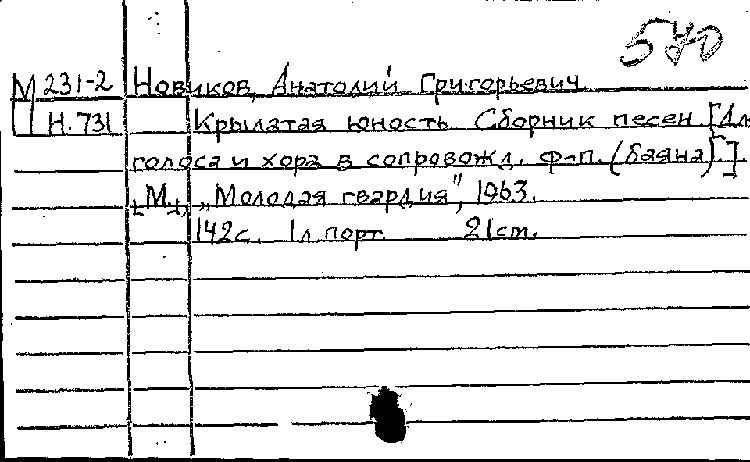 570
М 231-2 Новиков, Анатолий Григорьевич
Н. 731 Крылатая юность. Сборник песен. [Дл
голоса и хора в сопровожд. ф-п. (баяна).]
[М.], „Молодая гвардия", 1963.
142с. 1 л. порт. 21cm.